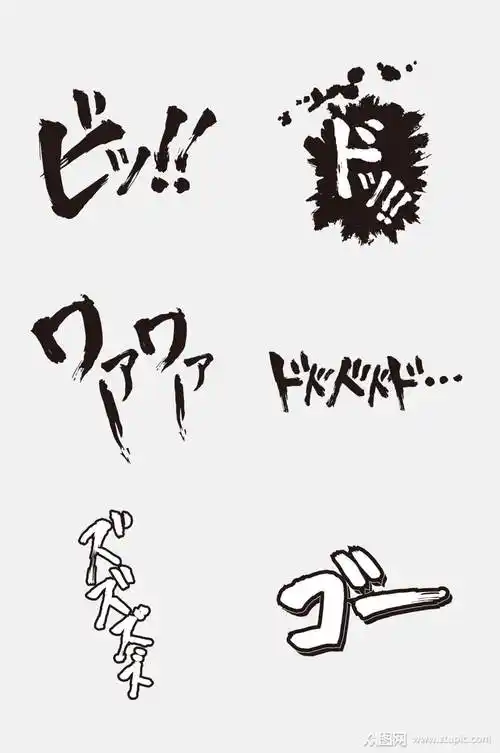 ビッ!!
ドッ!!
ワァーワァー
ドドドドド…
ズズズズ
ゴー
图网 www.ztupic.com